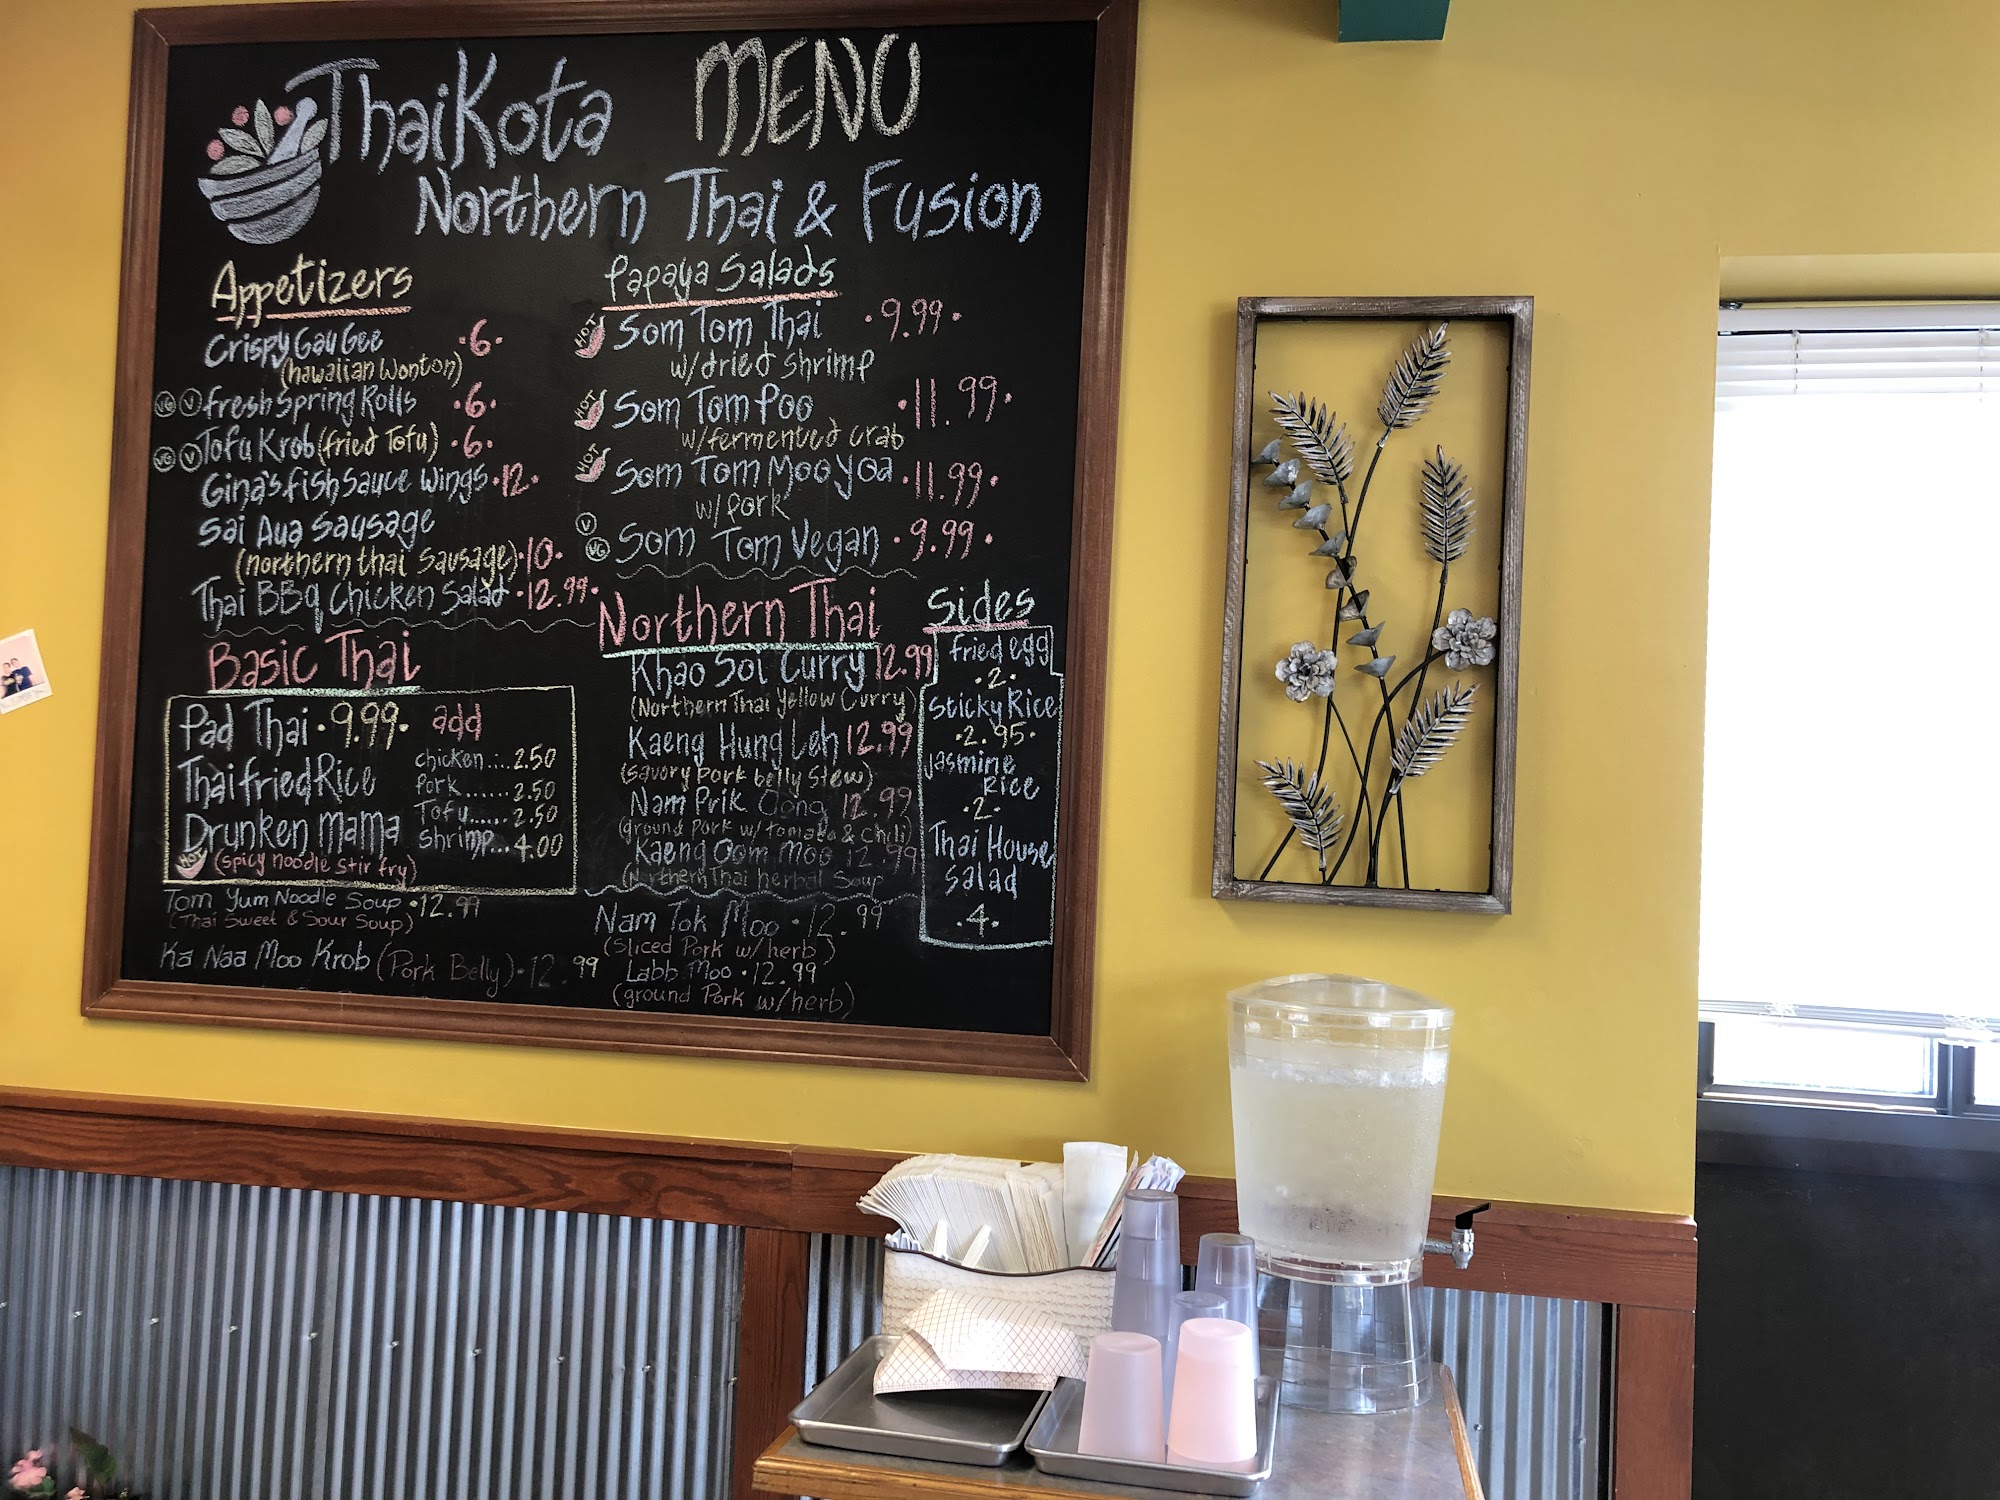 ThaiKota MENU
Northern Thai & Fusion
Appetizers
Crispy Gau Gee •6•
(hawaiian wonton)
VG V Fresh Spring Rolls •6•
VG V Tofu Krob (fried Tofu) •6•
Gina's fish sauce Wings •12•
Sai Aua Sausage
(northern thai Sausage) •10•
Thai BBq Chicken Salad •12.99•
Basic Thai
Pad Thai •9.99•
Thai fried Rice
Drunken mama
HOT (spicy noodle stir fry)
add
chicken.....2.50
Pork......2.50
Tofu.....2.50
Shrimp...4.00
Tom Yum Noodle Soup •12.99
(Thai Sweet & Sour Soup)
Ka Naa Moo Krob (Pork Belly) •12.99
Papaya Salads
HOT Som Tom Thai •9.99•
w/dried shrimp
HOT Som Tom Poo •11.99•
w/fermented crab
HOT Som Tom Moo Yoa •11.99•
w/pork
V VG Som Tom Vegan •9.99•
Northern Thai
Khao Soi Curry 12.99
(Northern Thai Yellow Curry)
Kaeng Hung Leh 12.99
(savory pork belly stew)
Nam Prik Oong 12.99
(ground pork w/ tomato & chili)
Kaeng Oom Moo 12.99
(Northern Thai herbal Soup
Nam Tok Moo •12.99
(Sliced Pork w/herb)
Labb Moo •12.99
(ground Pork w/herb)
Sides
fried egg
•2•
Sticky Rice
•2.95•
Jasmine
Rice
•2•
Thai House
Salad
•4•